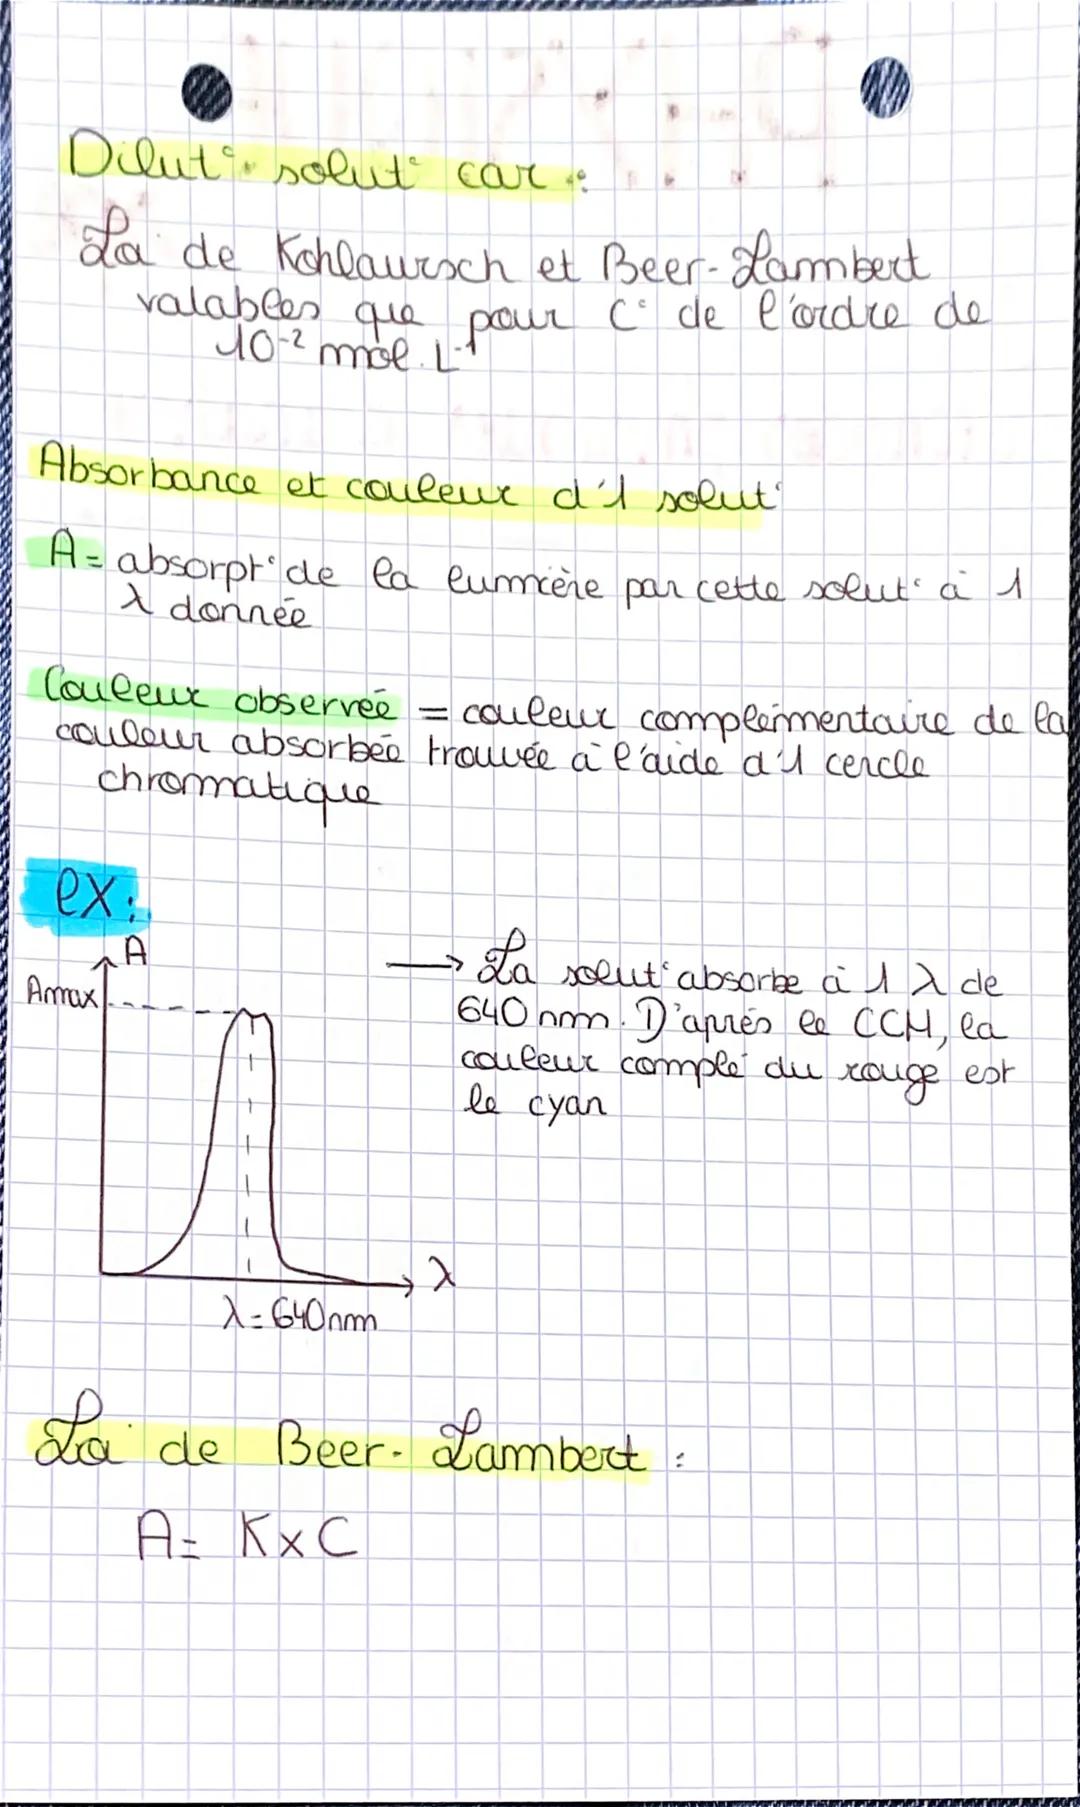 Dilut° solut° car :
Loi de Kohlaursch et Beer-Lambert
valables que pour C° de l'ordre de
10⁻² mol.L⁻¹
Absorbance et couleur d'1 solut°
A = absorpt° de la lumière par cette solut° à 1
λ donnée
Couleur observée = couleur complémentaire de la
couleur absorbée trouvée à l'aide d'1 cercle
chromatique
ex :
A
Amax
→ La solut° absorbe à 1 λ de
640 nm. D'après le CCM, la
couleur complé du rouge est
le cyan
λ
λ = 640nm
Loi de Beer-Lambert :
A = K x C